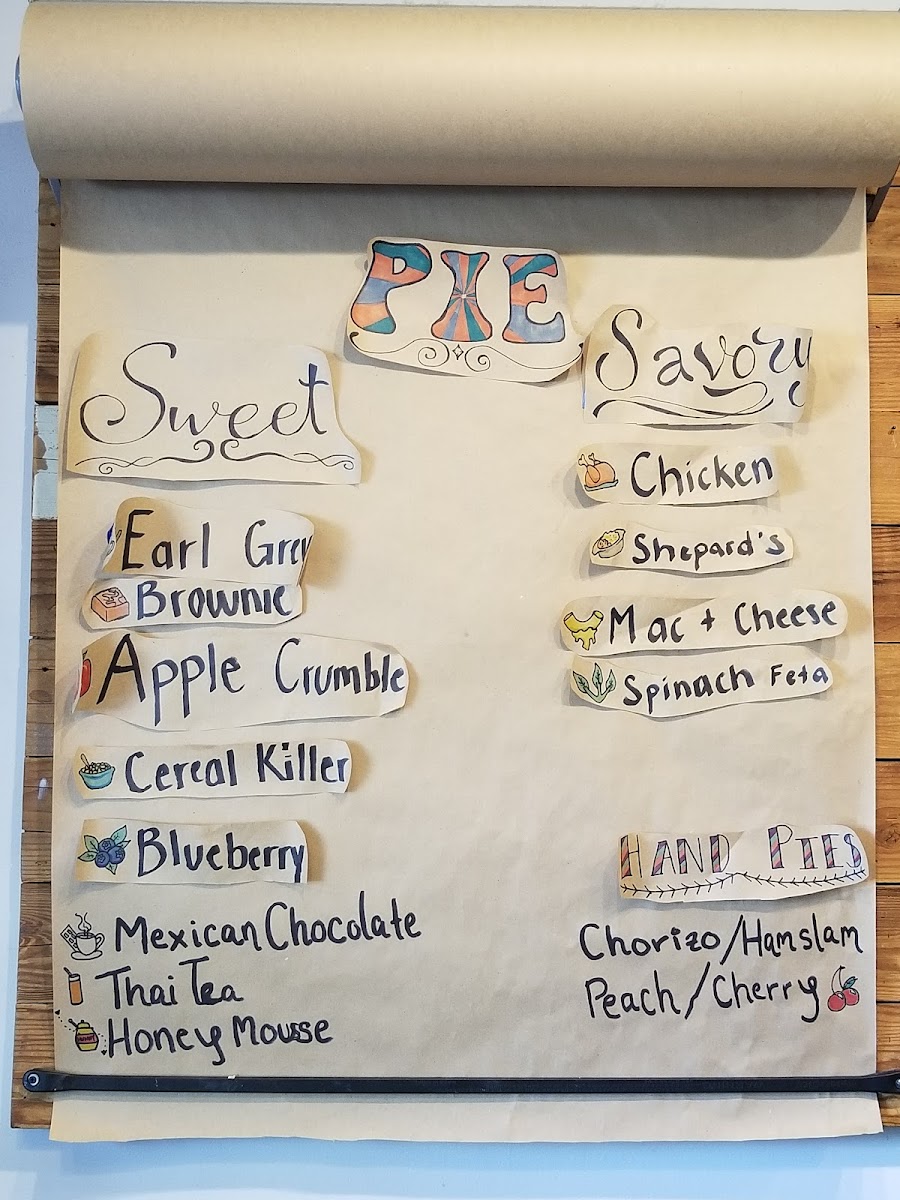 PIE
Sweet
Earl Grey
Brownie
Apple Crumble
Cereal Killer
Blueberry
Mexican Chocolate
Thai Tea
Honey Mousse
Savory
Chicken
Shepard's
Mac + Cheese
Spinach Feta
HAND PIES
Chorizo/Hamslam
Peach/Cherry